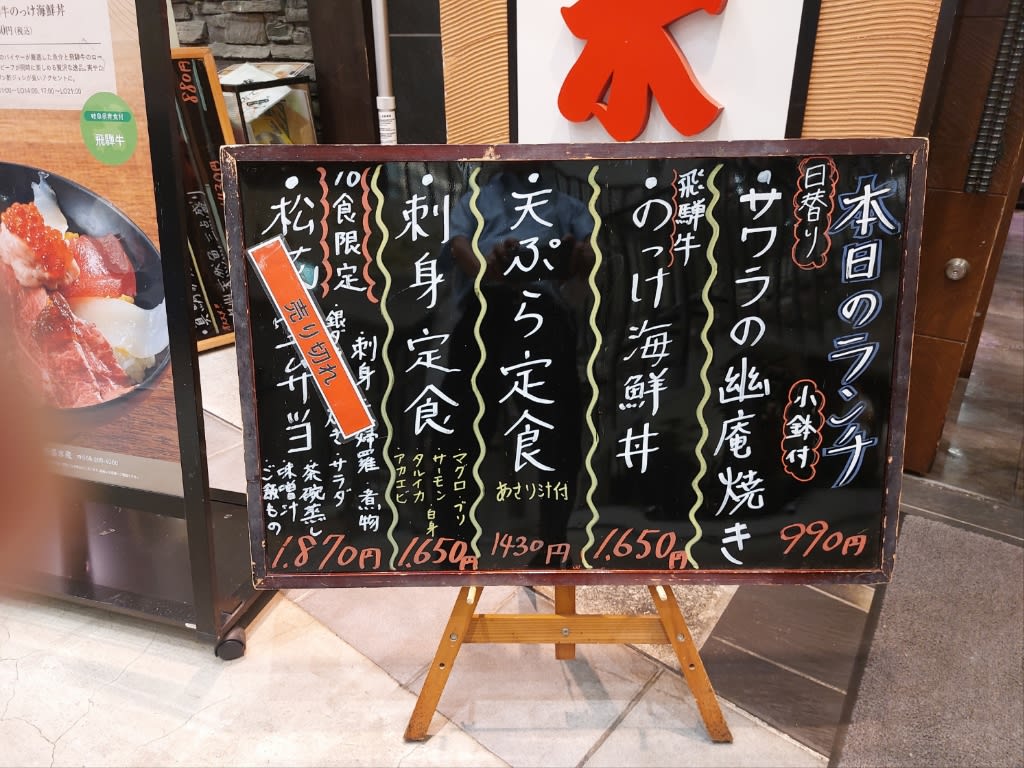 本日のランチ
日替り
小鉢付
・サワラの幽庵焼き
990円
飛騨牛
・のっけ海鮮丼
1.650円
・天ぷら定食
あさり汁付
1430円
・刺身定食
・マグロ・ブリ
・サーモン・白身
タルイカ
アカエビ
1.650円
10食限定
・松
弁当
売り切れ
・刺身
・煮物
・銀
・サラダ
茶碗蒸し
味噌汁
ご飯もの
1.870円
牛のっけ海鮮丼
岐阜県産食付
飛騨牛
880円